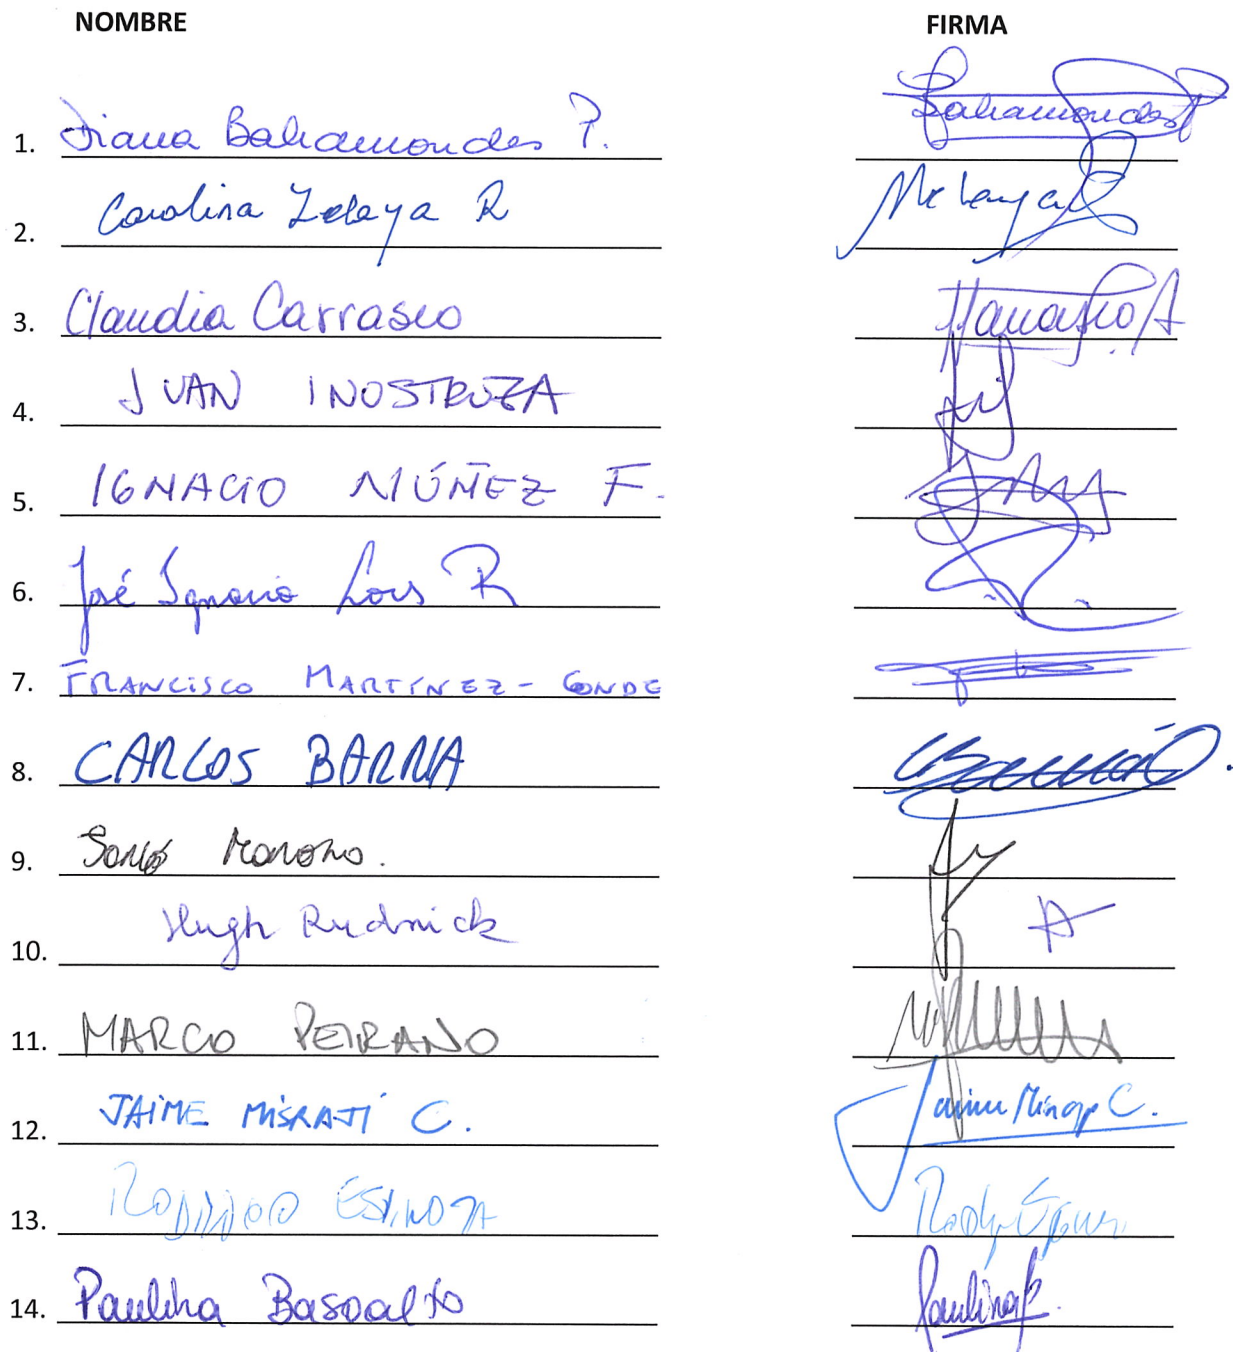 NOMBRE FIRMA
1. Diana Bahamondes P. Bahamondes P
2. Carolina Zelaya R
3. Claudia Carrasco
4. JUAN INOSTROZA
5. IGNACIO NÚÑEZ F.
6. José Ignacio Lois R
7. FRANCISCO MARTÍNEZ-CONDE
8. CARLOS BARRIA
9. Moreno.
10. Hugh Rudnick
11. MARCO PEIRANO
12. JAIME MISRAJÍ C. Jaime C.
13. RODRIGO ESPINOZA
14. Paulina Basoalto Paulina B.